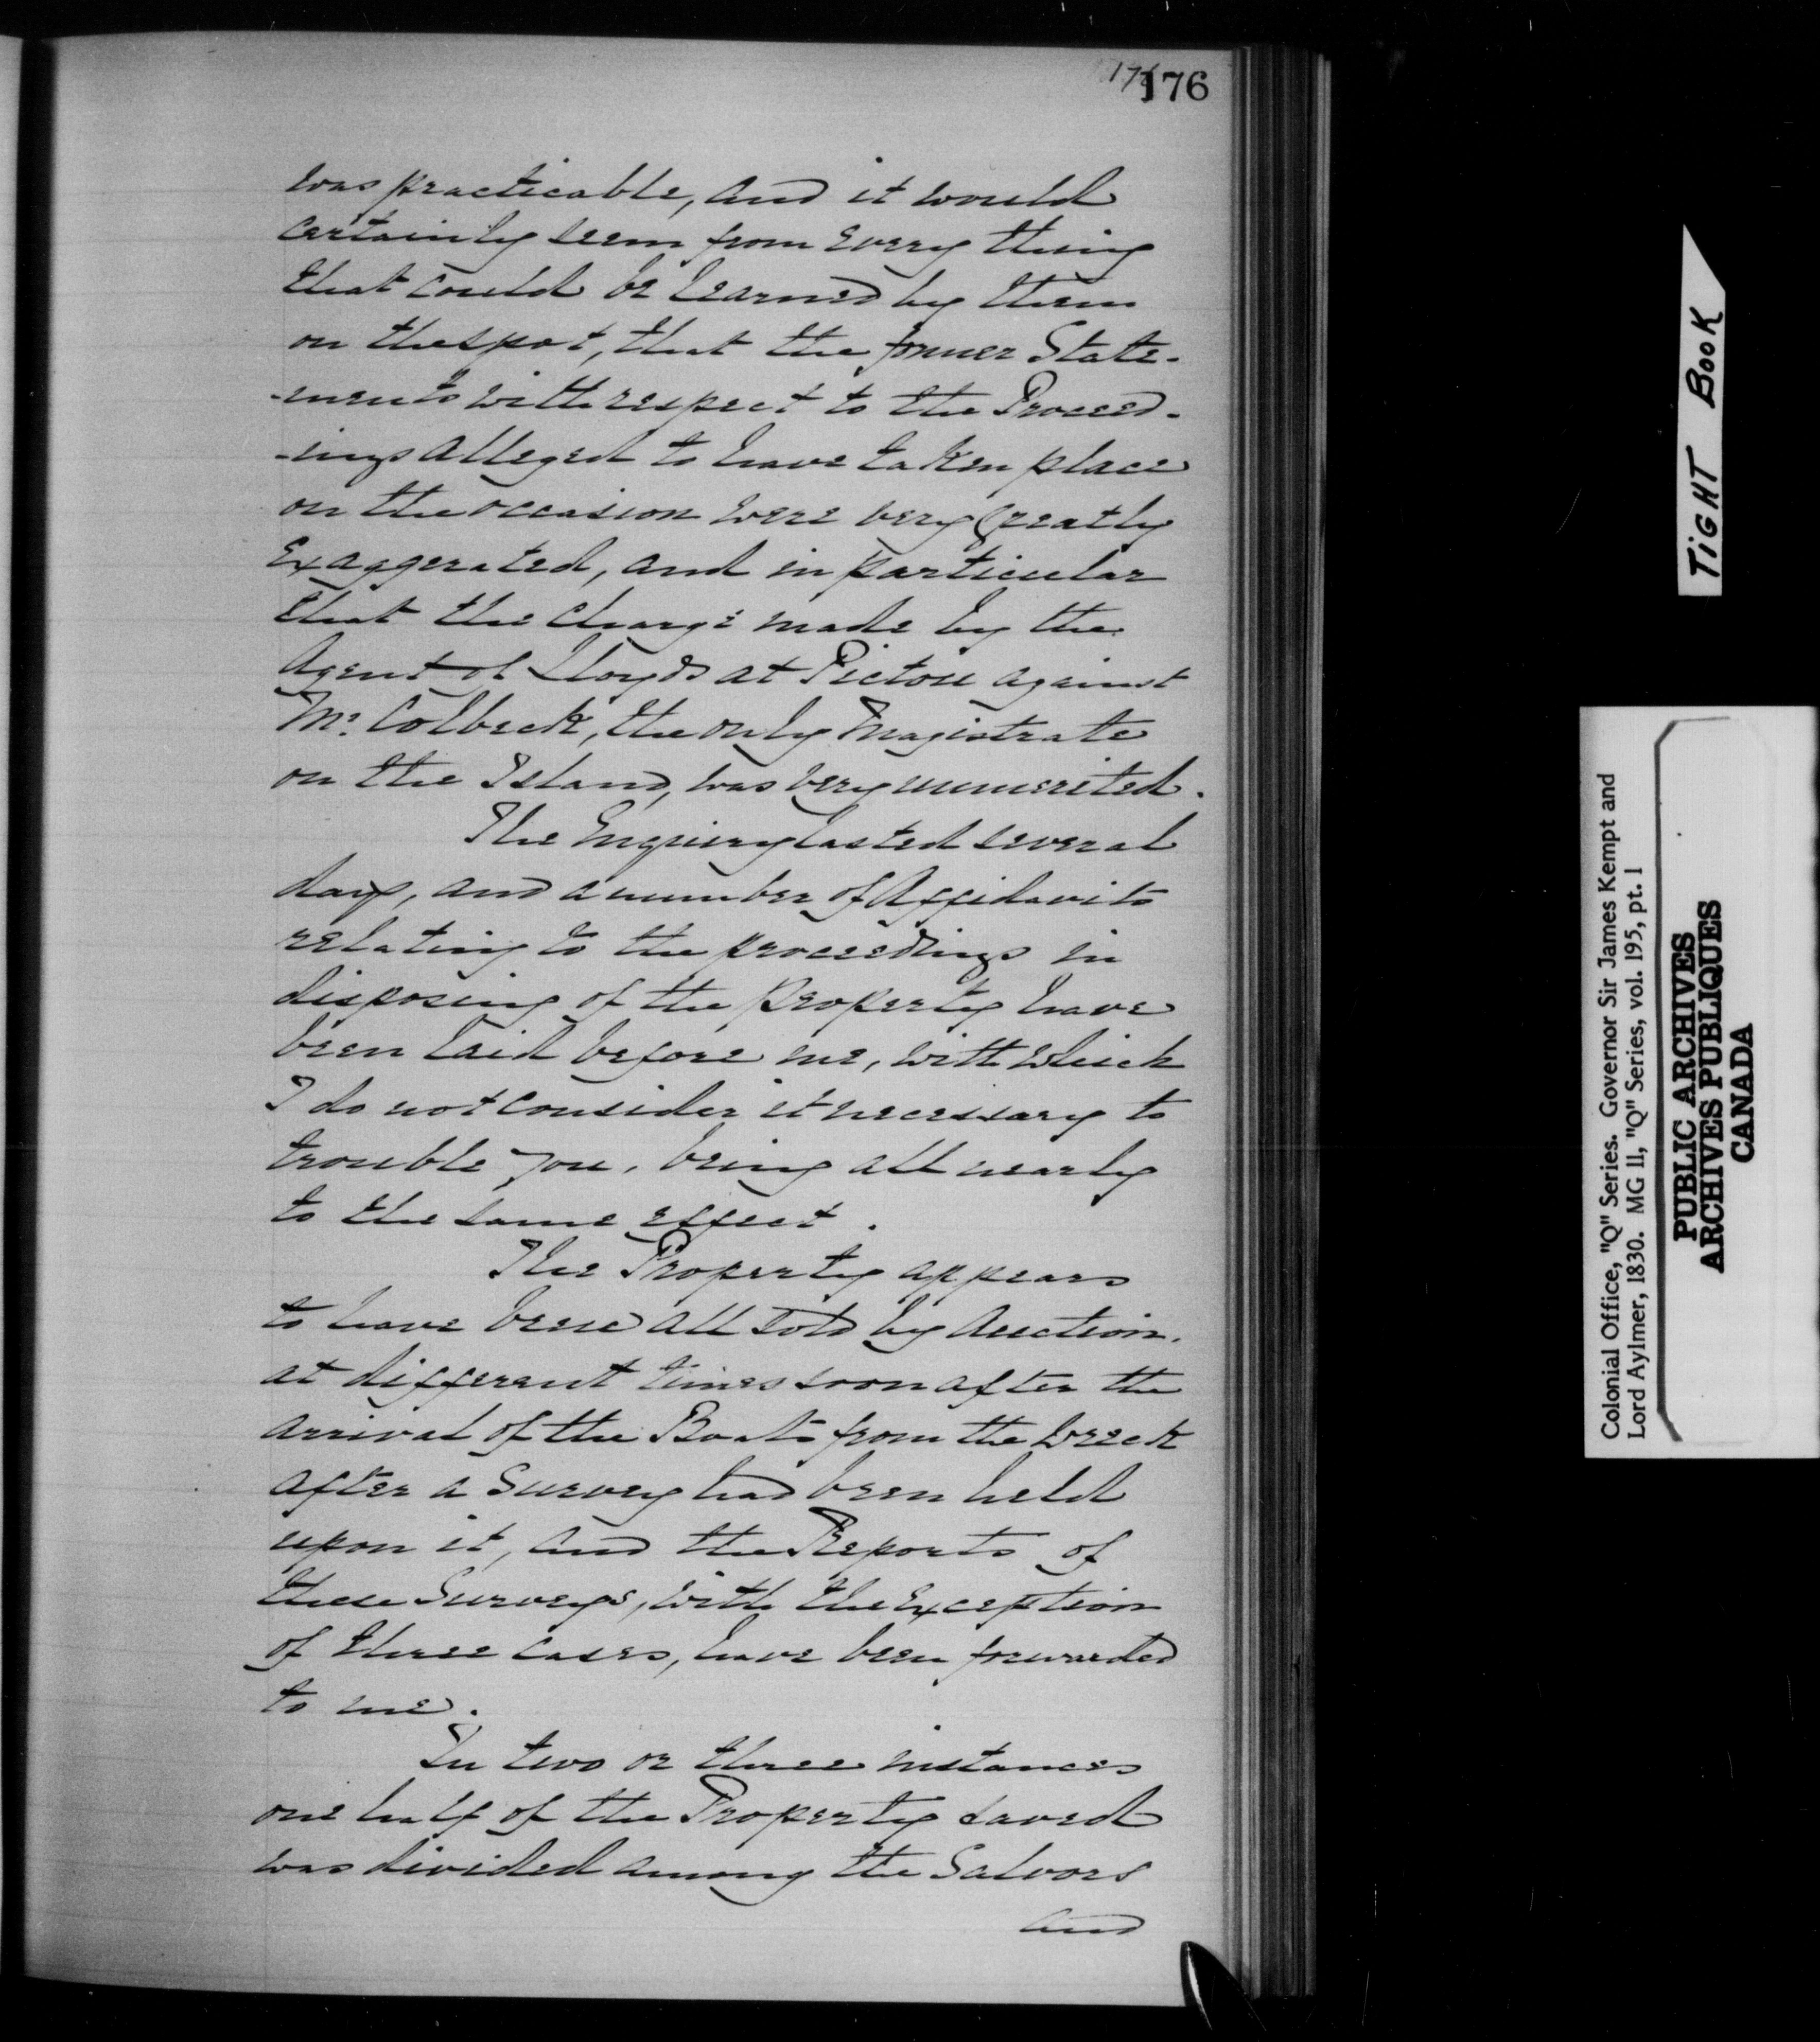 176
176
was practicable, and it would
certainly seem from every thing
that could be learned by them
on the spot, that the former State-
-ments with respect to the Proceed-
-ings alleged to have taken place
on the occasion were very greatly
exaggerated, and in particular
that the charge made by the
Agent of Lloyds at Pictou against
Mr. Colbeck, the only Magistrate
on the Island, was very unmerited.
The Enquiry lasted several
days, and a number of Affidavits
relating to the proceedings in
disposing of the property have
been laid before me, with which
I do not consider it necessary to
trouble you, being all nearly
to the same effect.
The Property appears
to have been all sold by Auction.
at different times soon after the
arrival of the Boats from the Wreck
after a Survey had been held
upon it, and the Reports of
these Surveys, with the exception
of three cases, have been forwarded
to me.
In two or three instances
one half of the Property saved
was divided among the Salvors
and
TIGHT BOOK
Colonial Office, "Q" Series. Governor Sir James Kempt and
Lord Aylmer, 1830. MG 11, "Q" Series, vol. 195, pt. 1
PUBLIC ARCHIVES
ARCHIVES PUBLIQUES
CANADA